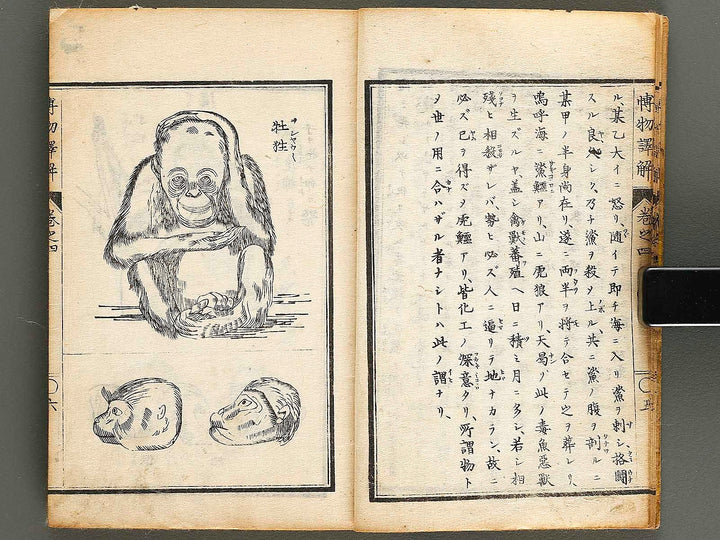 博物譯解 卷之四
ル、某乙大イニ怒リ、随イテ即チ海ニ入リ鯊ヲ刺シ、格闘
スル良シク、乃チ鯊ヲ殺タ上ル、共ニ鯊ノ腹ヲ剖ルニ
某甲ノ半身尚在リ、遂ニ両半ヲ将テ合セテ之ヲ葬レリ、
嗚呼海ニ鯊鱷アリ、山ニ虎狼アリ、天曷ゾ此ノ毒魚惡獸
ヲ生ズルヤ、蓋シ禽獸蕃殖ヘ日ニ積ミ月ニ多シ、若シ相
殘ヒ相殺ザレバ、勢ヒ必ズ人ニ逼リテ地ナカラン、故ニ
必ズ已ヲ得ズノ虎鱷アリ、皆化工ノ深意タリ、所謂物ト
ヲ世ノ用ニ合ハザル者ナシトハ此ノ謂ナリ、
博物譯解 卷之四 〇六
牲牲